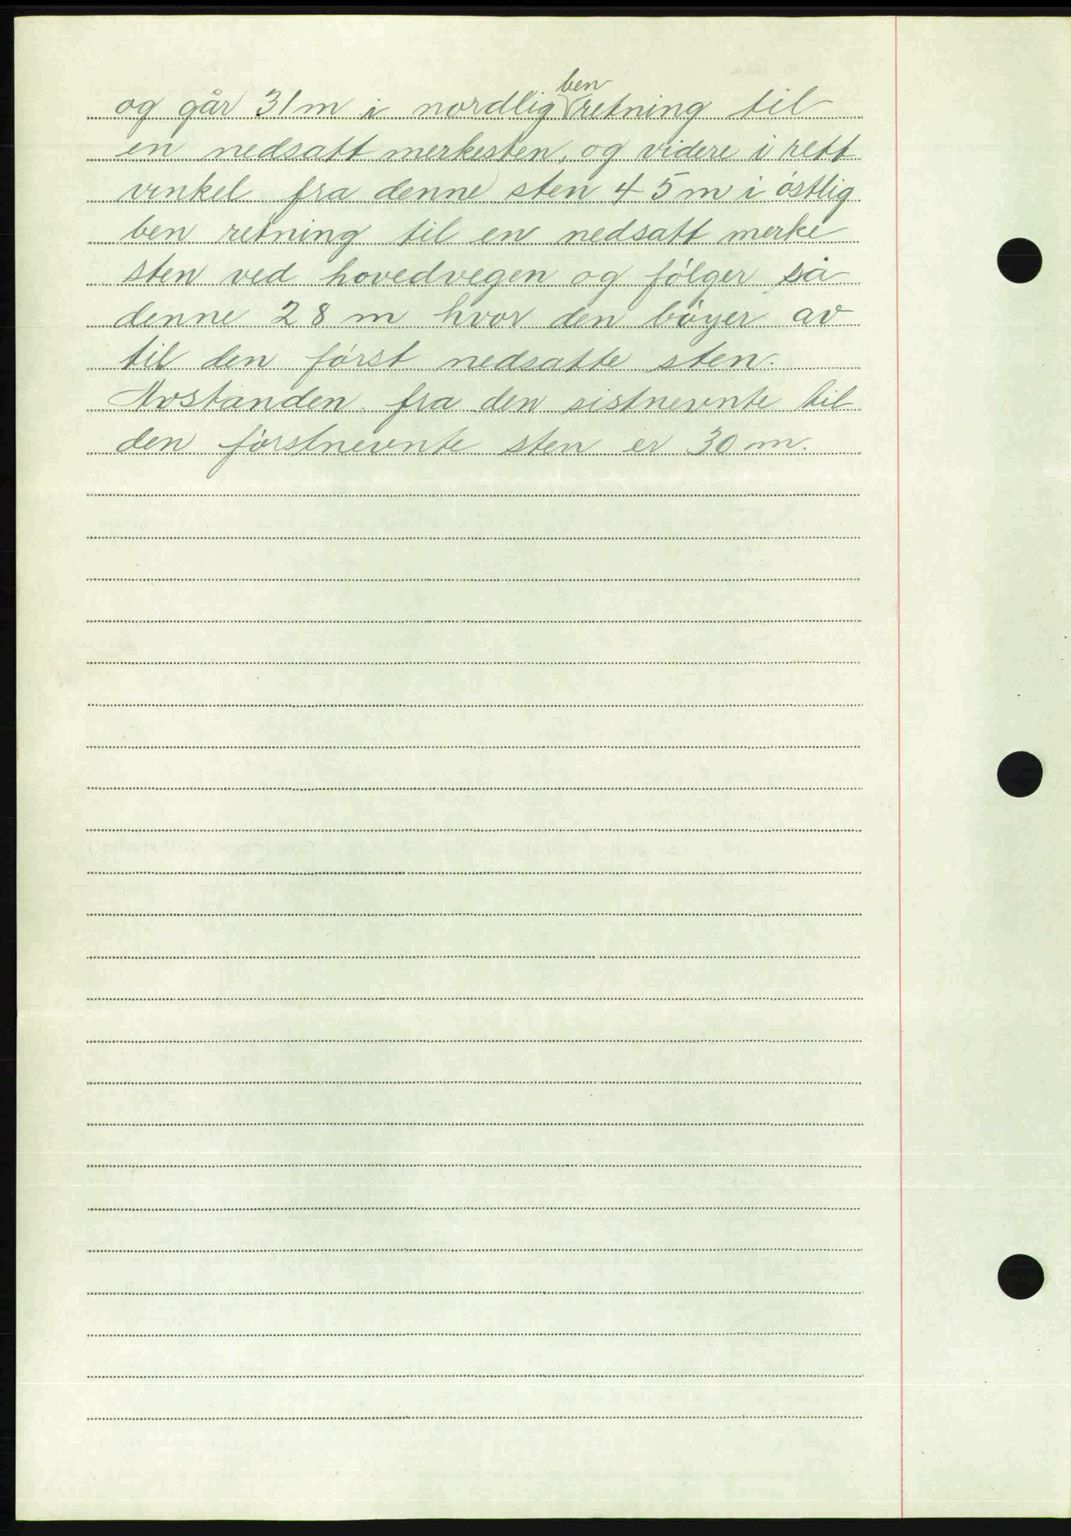 og går 31 m i nordlig ben retning til
en nedsatt merkesten, og videre i rett
vinkel fra denne sten 45 m i østlig
ben retning til en nedsatt merke
sten ved hovedvegen og følger så
denne 28 m hvor den bøyer av
til den først nedsatte sten.
Avstanden fra den sistnevnte til
den førstnevnte sten er 30 m.